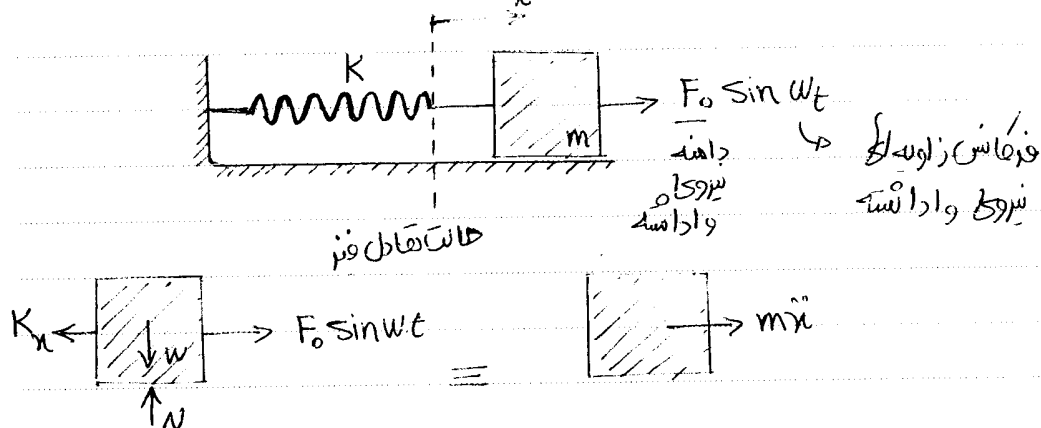 x
K
m
F₀ Sin ωt
دامنه
نیروی
واداشته
فرکانس زاویه‌ای
نیروی واداشته
حالت تعادل فنر
Kx
w
N
F₀ Sin ωt
≡
mẍ